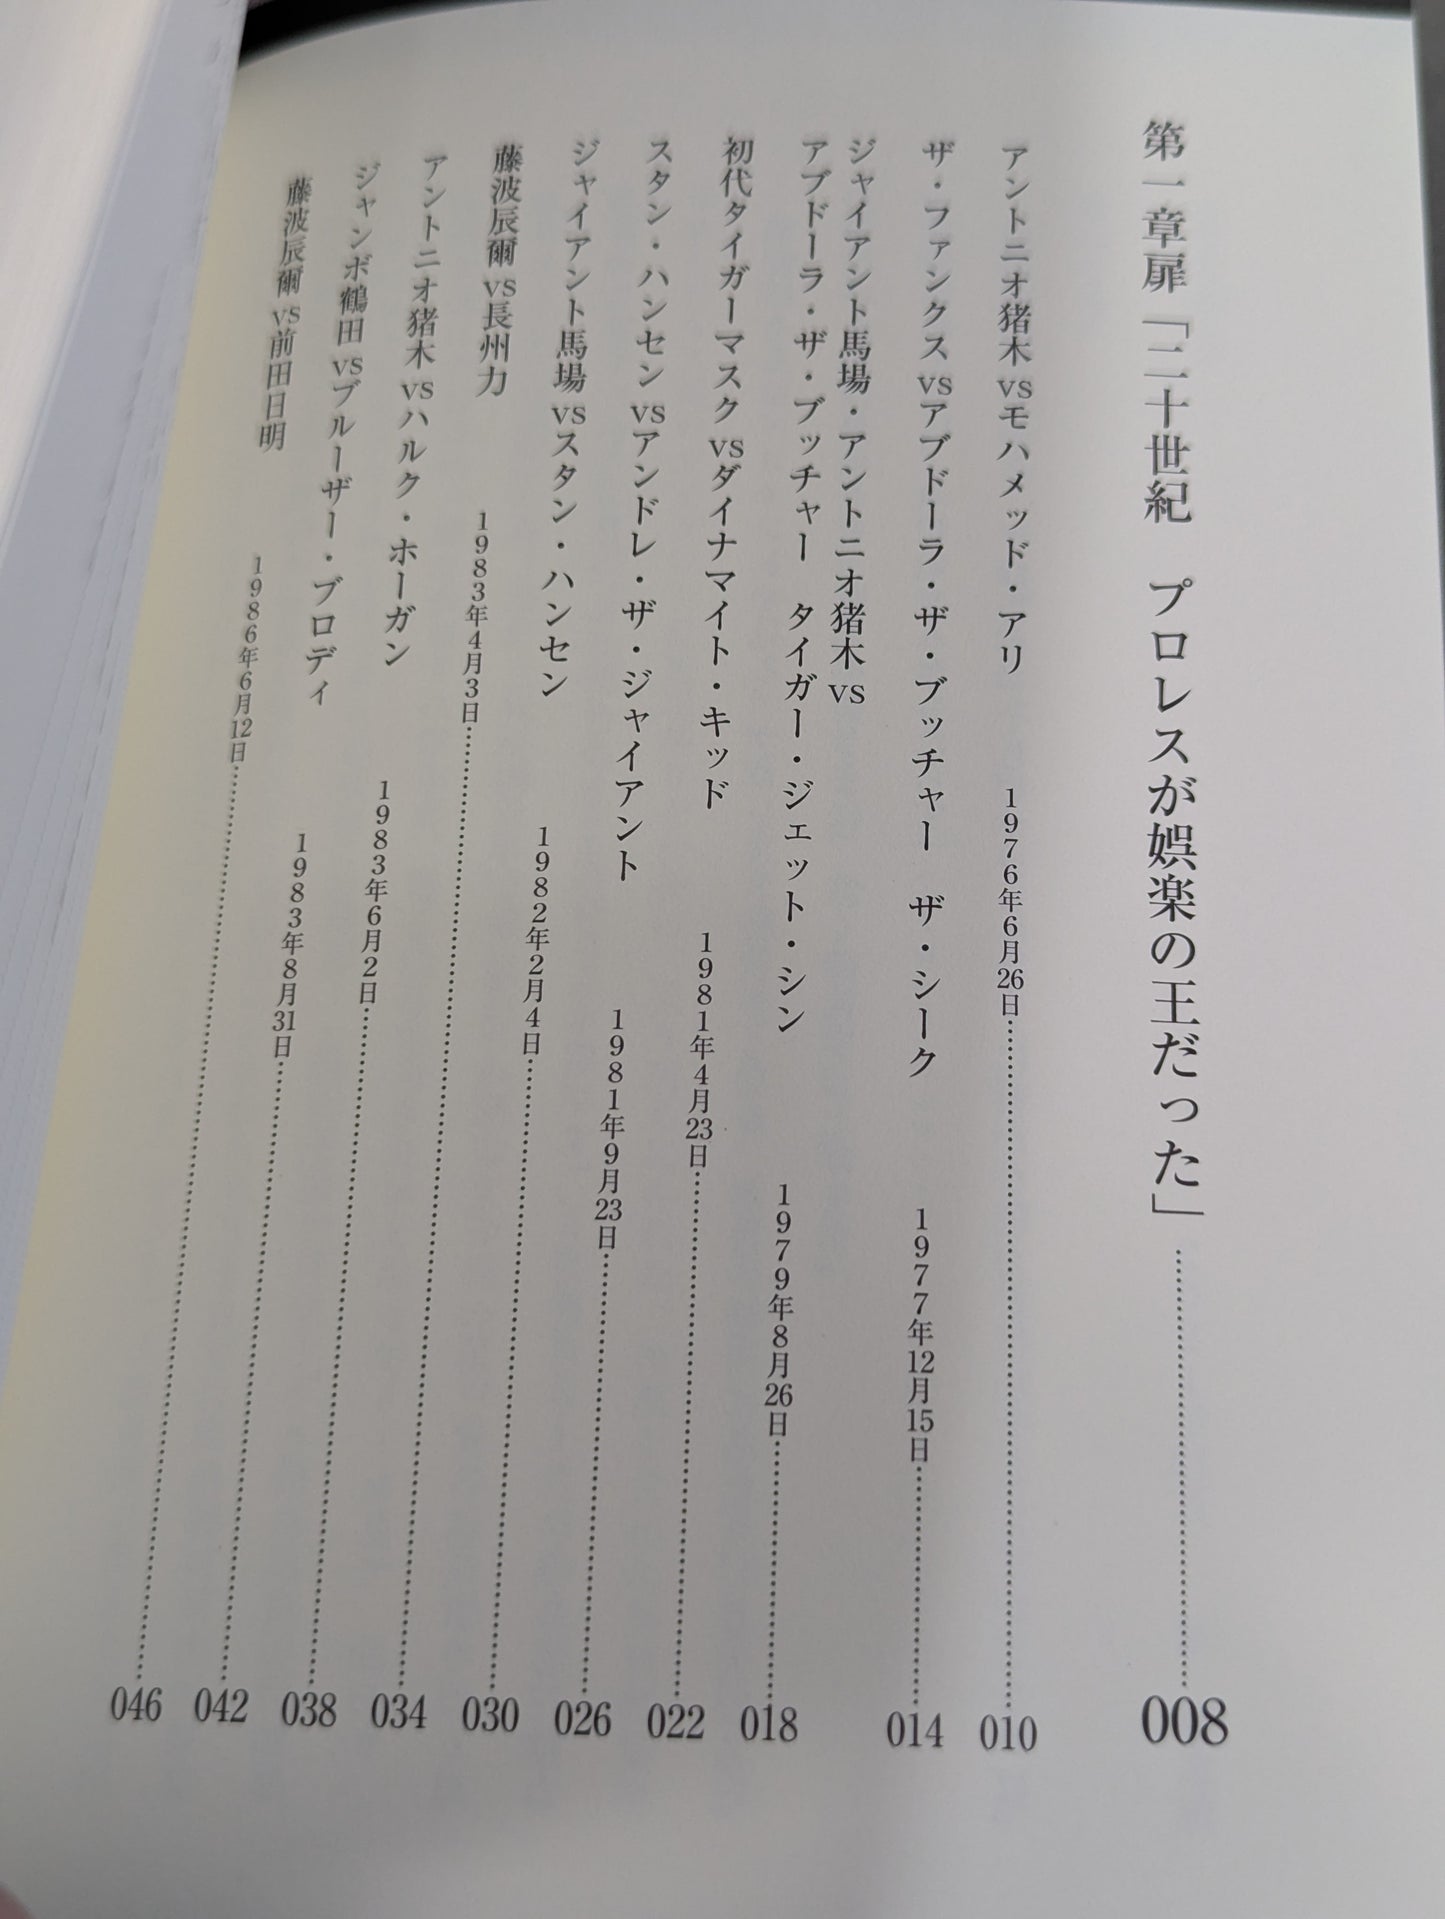 第一章扉「二十世紀　プロレスが娯楽の王だった」…………008
アントニオ猪木vsモハメッド・アリ　1976年6月26日…………010
ザ・ファンクスvsアブドーラ・ザ・ブッチャー　ザ・シーク　1977年12月15日…………014
ジャイアント馬場・アントニオ猪木vs
アブドーラ・ザ・ブッチャー　タイガー・ジェット・シン　1979年8月26日…………018
初代タイガーマスクvsダイナマイト・キッド　1981年4月23日…………022
スタン・ハンセンvsアンドレ・ザ・ジャイアント　1981年9月23日…………026
ジャイアント馬場vsスタン・ハンセン　1982年2月4日…………030
藤波辰爾vs長州力　1983年4月3日…………034
アントニオ猪木vsハルク・ホーガン　1983年6月2日…………038
ジャンボ鶴田vsブルーザー・ブロディ　1983年8月31日…………042
藤波辰爾vs前田日明　1986年6月12日…………046